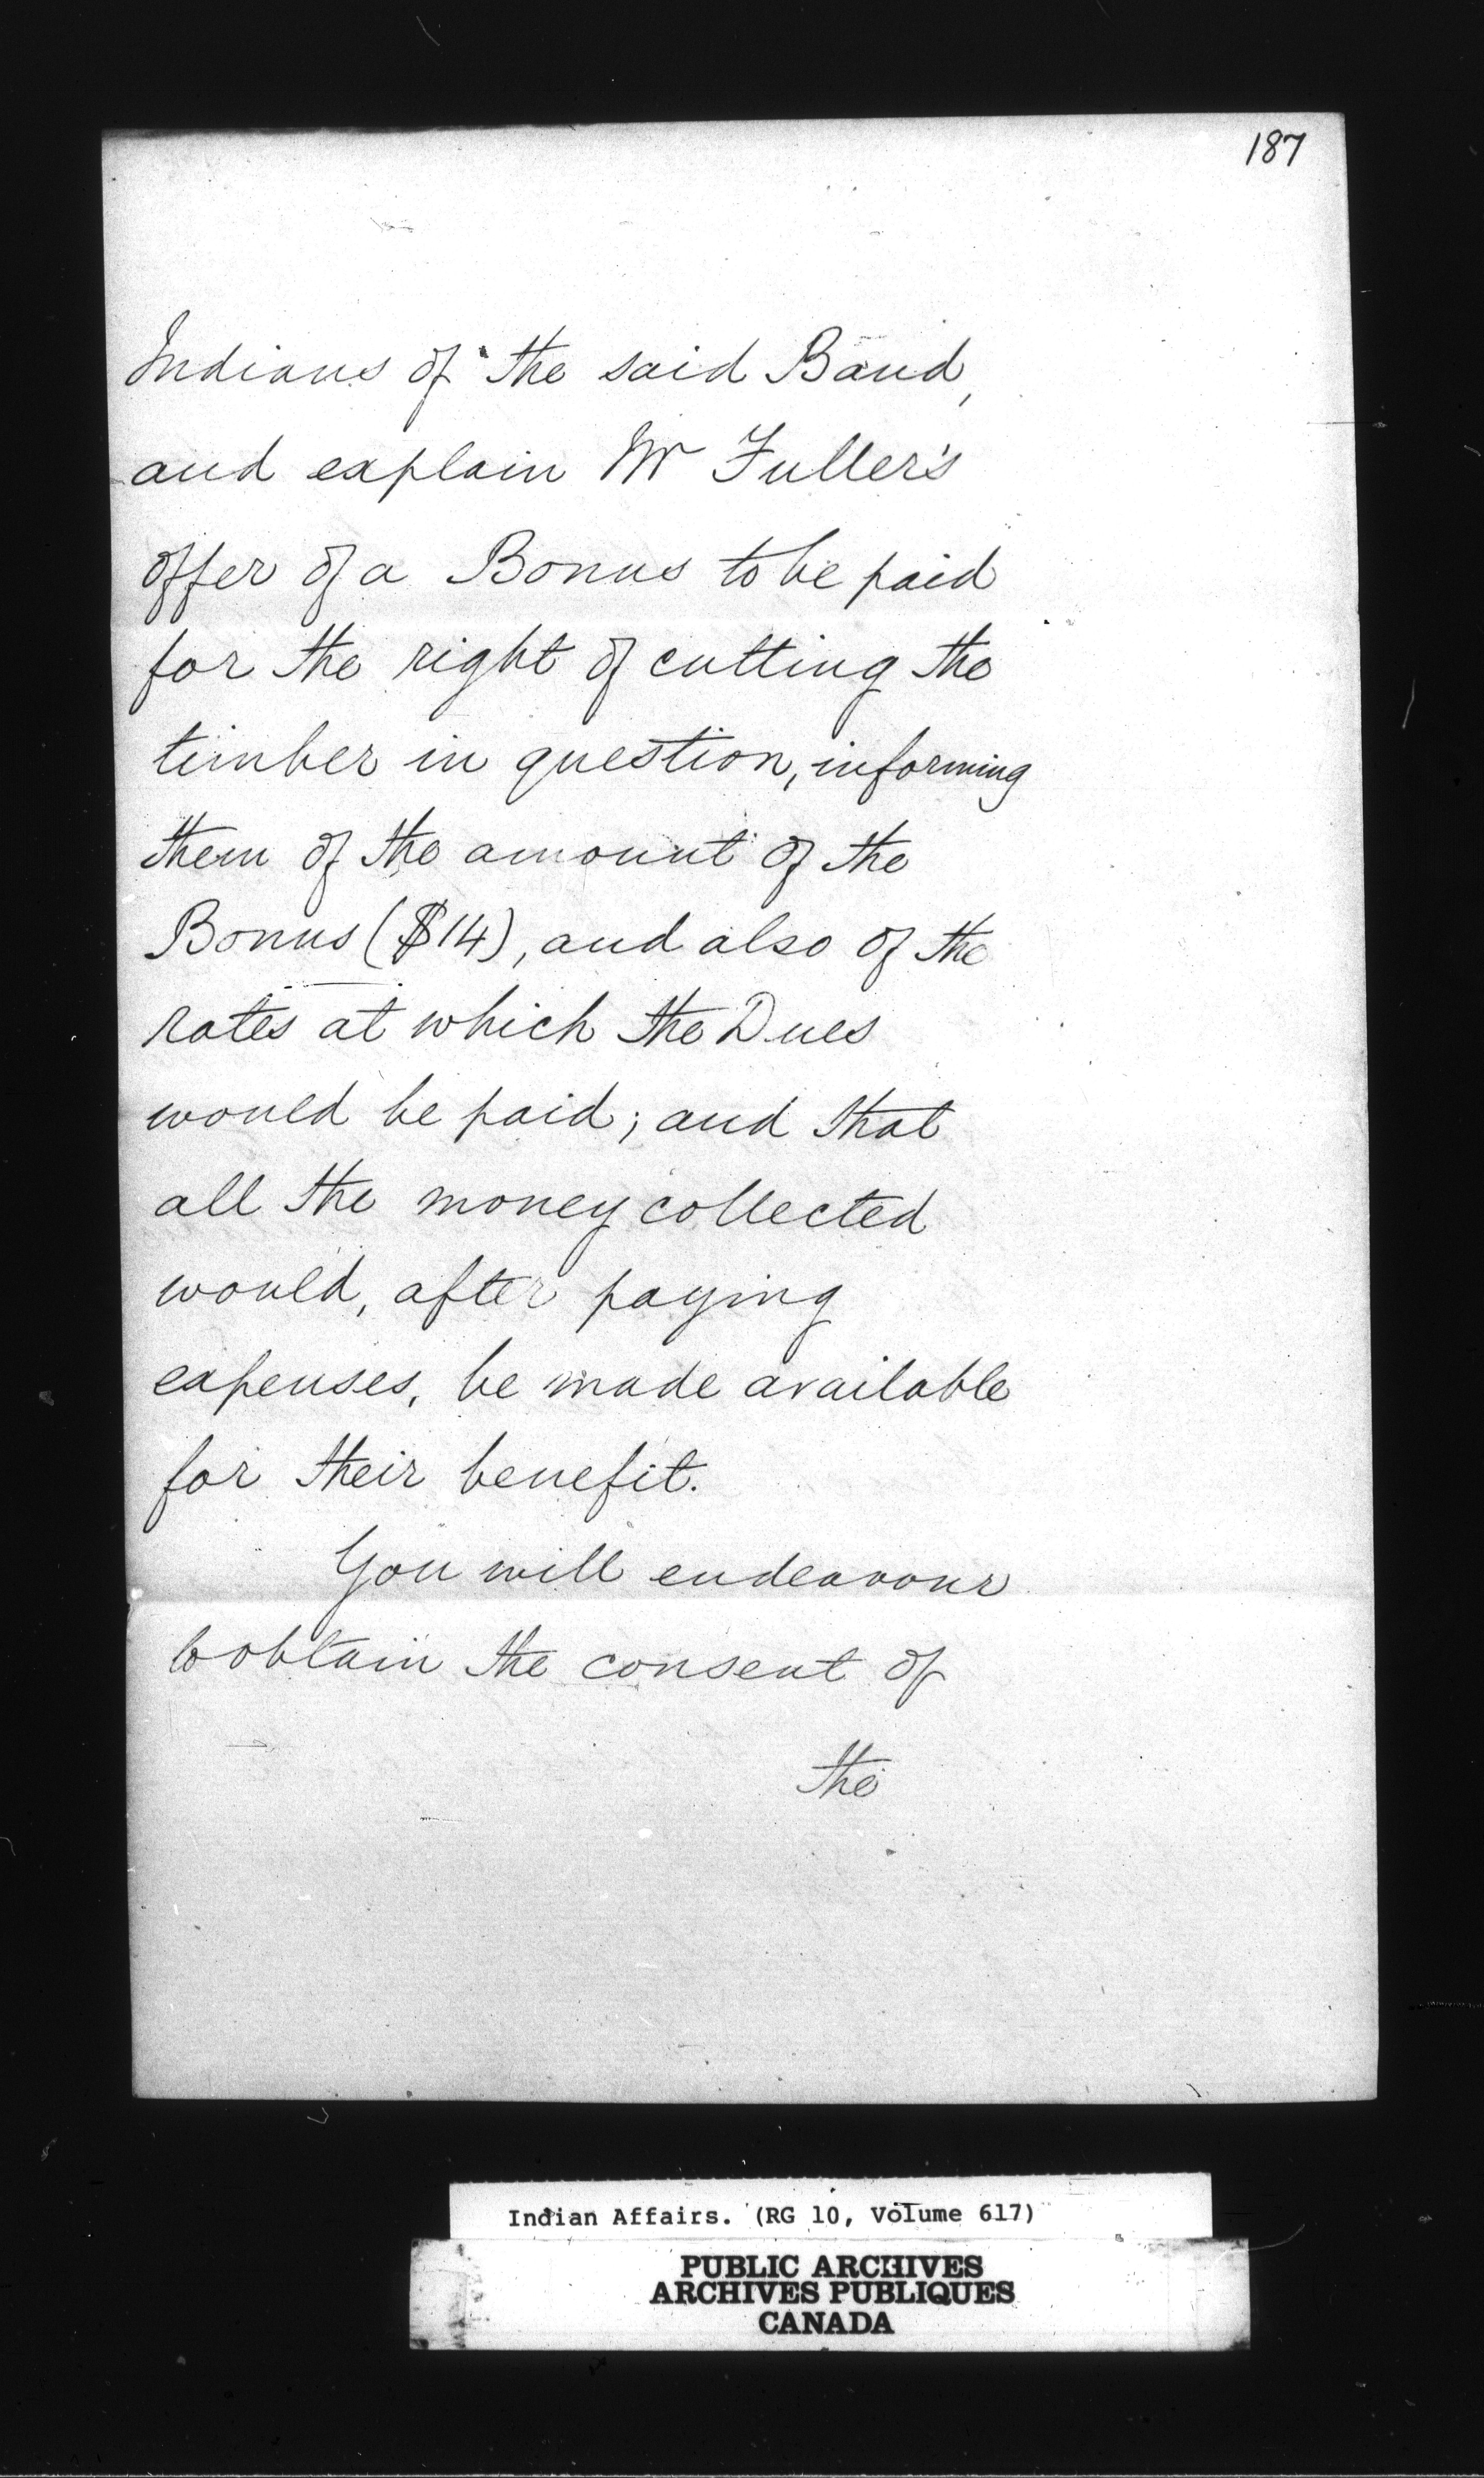 187
Indians of the said Band,
and explain Mr Fuller's
offer of a Bonus to be paid
for the right of cutting the
timber in question, informing
them of the amount of the
Bonus ($14), and also of the
rates at which the Dues
would be paid; and that
all the money collected
would, after paying
expenses, be made available
for their benefit.
You will endeavour
to obtain the consent of
the
Indian Affairs. (RG 10, Volume 617)
PUBLIC ARCHIVES
ARCHIVES PUBLIQUES
CANADA